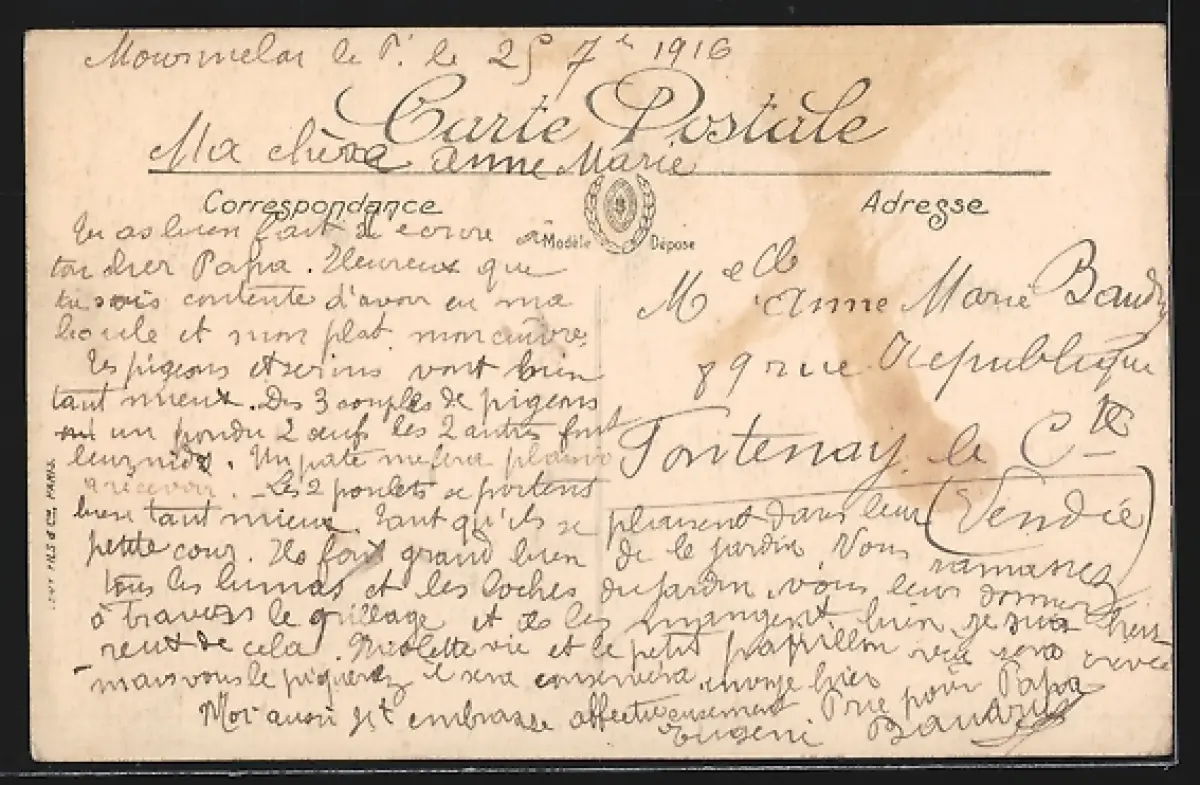 Mourmelon le P. le 25 7 1916
Carte Postale
Ma chère anne Marie
Correspondance
Adresse
Modèle Déposé
Tu as bien fait d'ecrire a
ton cher Papa. Heureux que
tu sois contente d'avoir eu ma
boucle et mon plat mon cuivre.
Les pigeons et serins vont bien
tant mieux. Des 3 couples de pigeons
un pondu 2 œufs les 2 autres font
leurs nids. Un paté me fera plaisir
a recevoir. Les 2 poulets se portent
bien tant mieux. Tant qu'ils se plaisent dans leur
petite cour. Ils font grand bien de le jardin. Vous ramasses
tous les lumas et les loches du jardin, vous leur donner
à travers le grillage et ils les mangent bien je suis heu-
reux de cela. Nicolette vie et le petit papillon sera crevé
mais vous le piquerez il sera conservera
Moi aussi je t embrasse affectueusement Prie pour Papa
Eugéni Baudry
Melle Anne Marie Baudry
89 rue Republique
Fontenay le Cte
(Vendée)
LEVY FILS & Cie, PARIS.